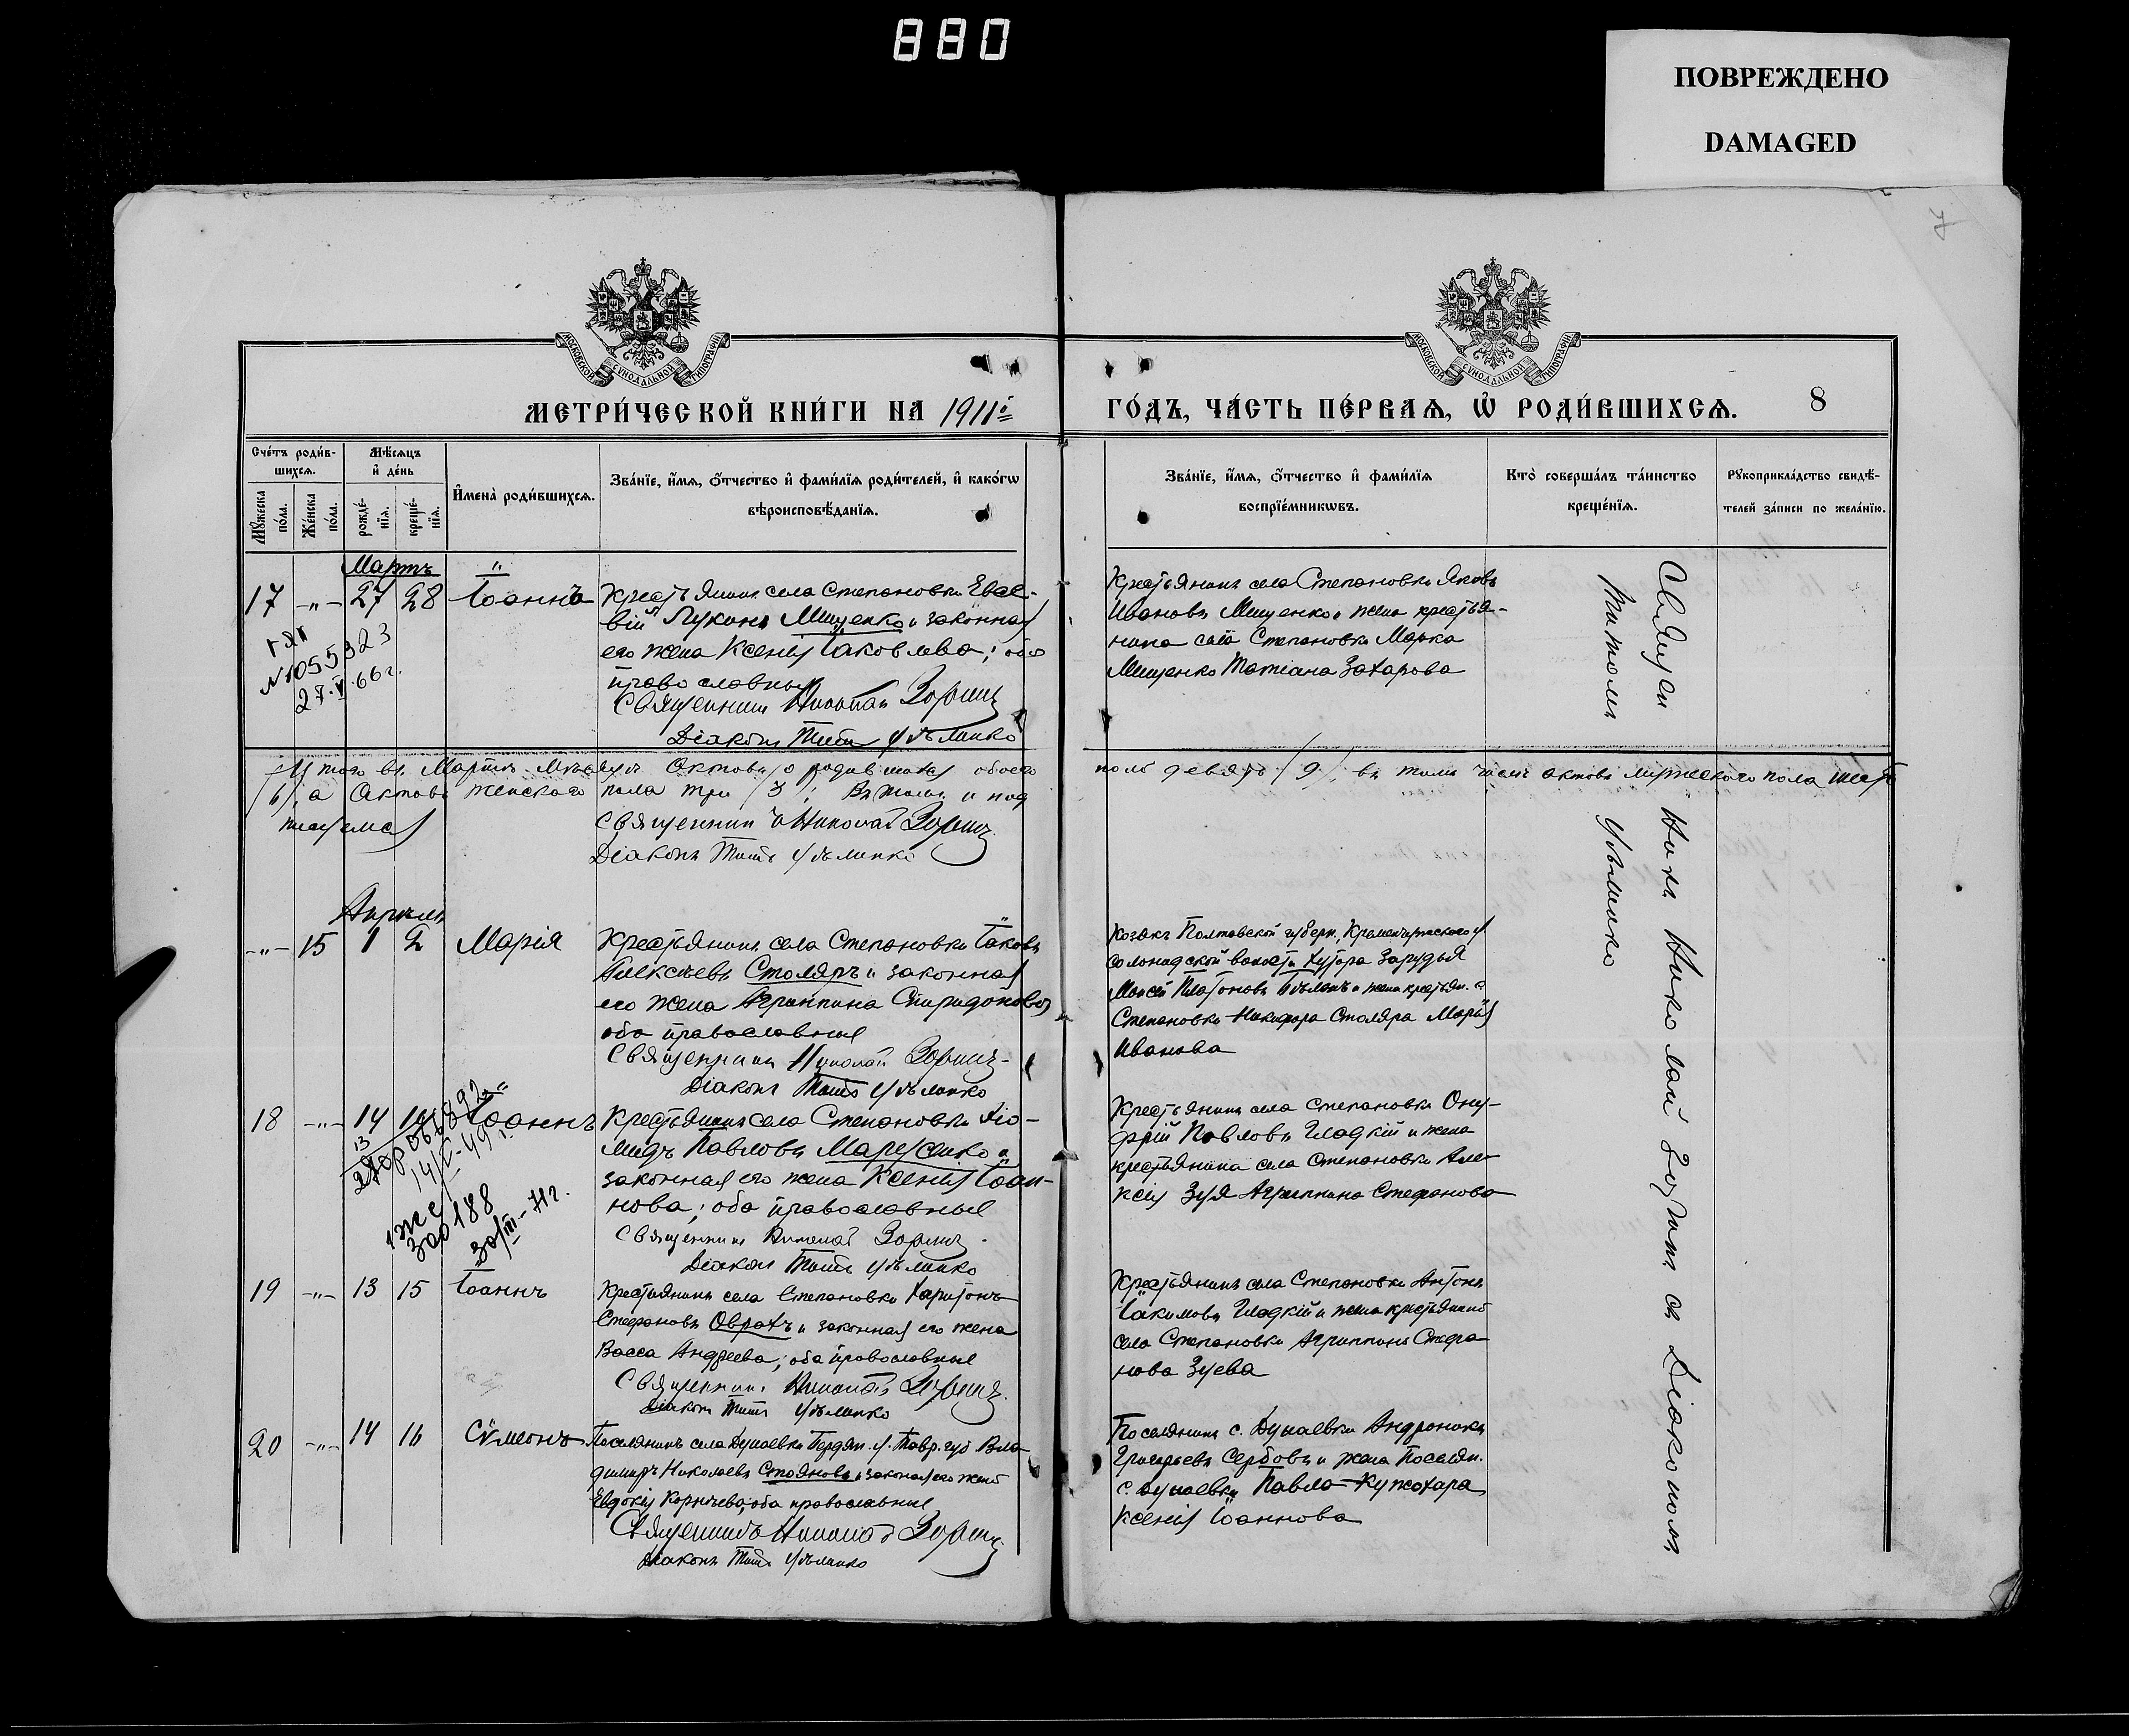 880
ПОВРЕЖДЕНО
DAMAGED
МОСКОВСКОЙ СѴНОДАЛЬНОЙ ТИПОГРАФІИ
МОСКОВСКОЙ СѴНОДАЛЬНОЙ ТИПОГРАФІИ
МЕТРИ́ЧЕСКОЙ КНИ́ГИ НА 1911й
ГО́ДЪ, ЧА́СТЬ ПЕ́РВАѦ, Ѡ҆ РОДИ́ВШИХСѦ. 8
Сче́тъ роди́в-
шихсѧ.
Мѣ́сѧцъ
и҆ де́нь
Мꙋ́жеска
по́ла.
Же́нска
по́ла.
рожде́-
нїѧ.
креще́-
нїѧ.
И҆мена̀ роди́вшихсѧ.
Зва́нїе, и҆́мѧ, ѻ҆́тчество и҆ фами́лїѧ роди́телей, и҆ како́гѡ
вѣроисповѣ́данїѧ.
Зва́нїе, и҆́мѧ, ѻ҆́тчество и҆ фами́лїѧ
воспрїе́мникѡвъ.
Кто̀ соверша́лъ та́инство
креще́нїѧ.
Рꙋкоприкла́дство свидѣ́-
телей за́писи по жела́нїю.
Мартъ
17 -"- 27 28 Іоаннъ Крестьянинъ села Степановки Евсе-
вій Лукинъ Мищенко и законная
его жена Ксенія Іаковлева; оба
православные
Священникъ Николай Зоринъ
Діаконъ Титъ Убѣйко
№ 055323
27.V.66г.
Крестьянинъ села Степановки Яковъ
Ивановъ Мищенко и жена крестья-
нина села Степановки Марка
Мищенко Татіана Захарова
Итого въ Мартѣ мѣсяцѣ актовъ о родившихся обоего
пола девять /9/; въ томъ числѣ актовъ мужескаго пола шесть
/6/, а актовъ женскаго пола три /3/;
Священникъ Николай Зоринъ
Діаконъ Титъ
Апрѣль
-"- 15 1 2 Марія Крестьянинъ села Степановки Іаковъ
Алексѣевъ Столяръ и законная
его жена Агриппина Спиридонова
оба православные
Священникъ Николай Зоринъ
Діаконъ Титъ
Козакъ Полтавской губерн., Кременчугскаго у
волости хутора Зарудья
Моисей Платоновъ и жена крестьян. с
Степановки Никифора Столяра Марія
Иванова
18 -"- 14 Іоаннъ Крестьянинъ села Степановки Діо-
мидъ Павловъ Марусенко и
законная его жена Ксенія Іоан-
нова; оба православные
Священникъ Николай Зоринъ
Діаконъ Титъ
Крестьянинъ села Степановки Ону-
фрій Павловъ Гладкій и жена
крестьянина села Степановки Але-
ксія Зуя Агриппина Стефанова
19 -"- 13 15 Іоаннъ Крестьянинъ села Степановки Харитонъ
Стефановъ Оврахъ и законная его жена
Васса Андреева; оба православные
Священникъ Николай Зоринъ
Діаконъ Титъ
Крестьянинъ села Степановки Антонъ
Іакимовъ Гладкій и жена крестьянина
села Степановки Агриппина Стефа-
нова Зуева
20 -"- 14 16 Сѵмеонъ Поселянинъ села Дунаевки Бердян. у. Тавр. губ Вла-
димиръ Николаевъ Стояновъ и законная его жена
Евдокія Корнѣева; оба православные
Священникъ Николай Зоринъ
Діаконъ Титъ
Поселянинъ с. Дунаевки Андроникъ
Григорьевъ Сербовъ и жена Поселян.
с. Дунаевки Павла
Ксенія Іоаннова
Священникъ Николай Зоринъ съ Діакономъ
Титомъ